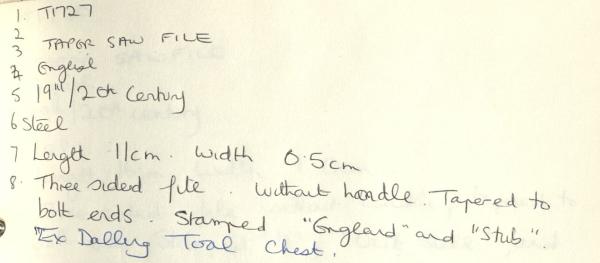 1. T1727
2
3 TAPER SAW FILE
4 English
5 19th/20th Century
6 Steel
7 Length 11cm. Width 0.5cm
8. Three sided file. Without handle. Tapered to
both ends. Stamped "England" and "Stub".
"Ex Dalling Tool Chest.